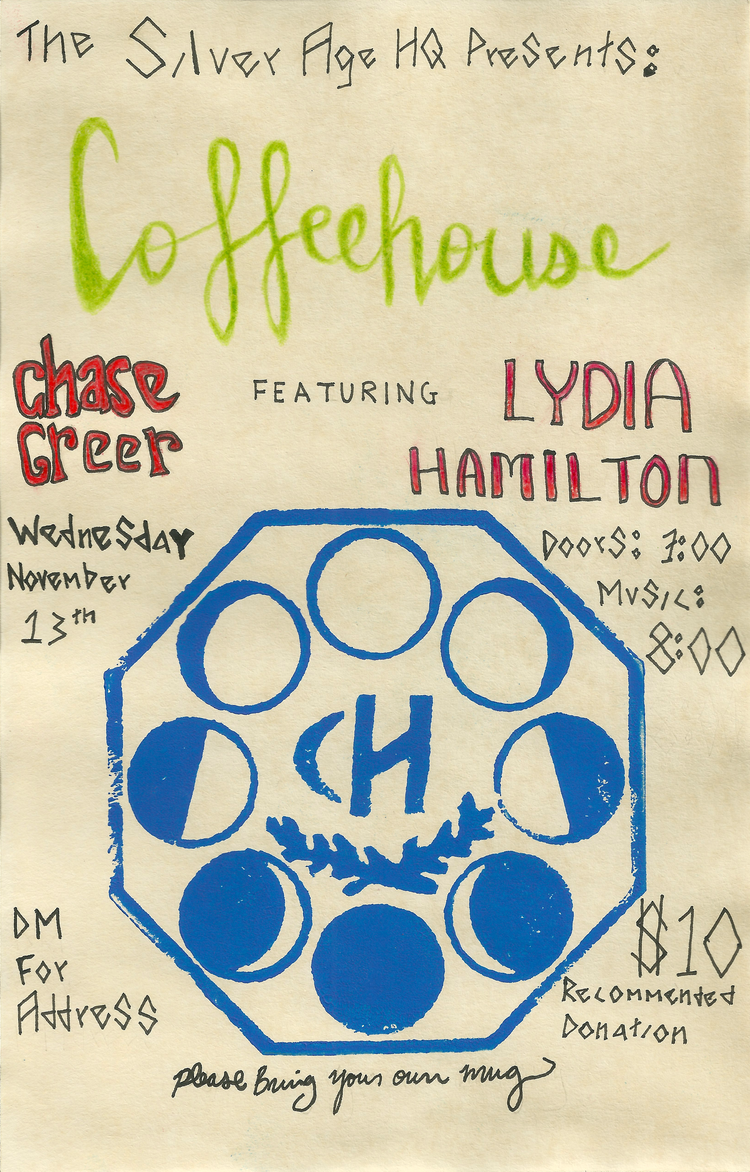 The Silver Age HQ Presents:
Coffeehouse
Chase
Greer
FEATURING
LYDIA
HAMILTON
Wednesday
November
13th
Doors: 7:00
Music:
8:00
CH
DM
For
Address
$10
Recommended
Donation
please bring your own mug